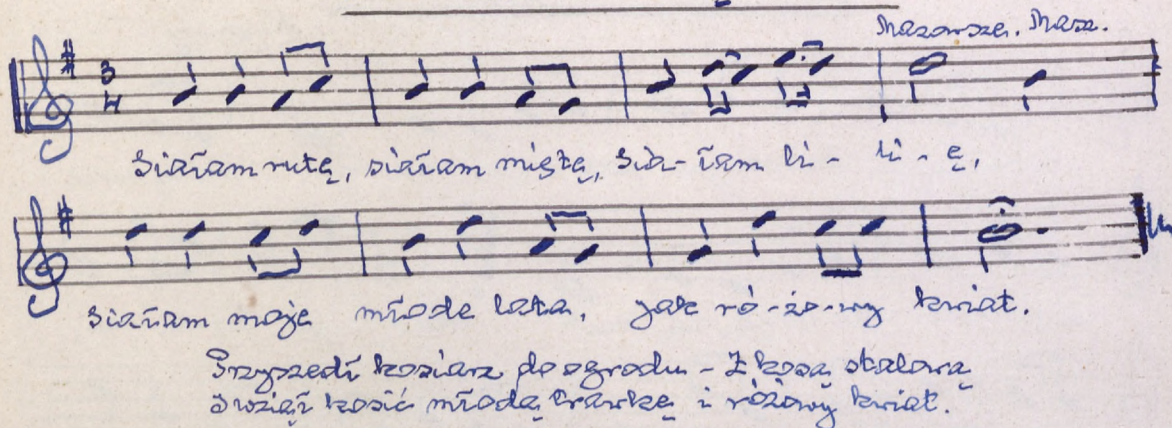 Mazowsze. Maz.
3
4
Siałam rutę, siałam miętę, sia-łam li - li - ę,
Siałam moje młode lata, jak ró-żo-wy kwiat.
Przyszedł kosiarz do ogrodu - Z kosą stalową
I wziął kosić młodą trawkę i różowy kwiat.